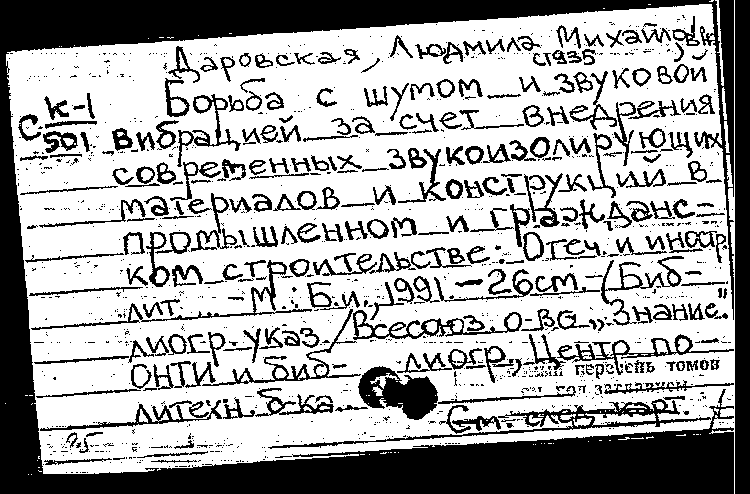 Даровская, Людмила Михайловн
(1935
К-1 Борьба с шумом и звуковой
С 501 вибрацией за счет внедрения
современных звукоизолирующих
материалов и конструкций в
промышленном и гражданс-
ком строительстве: Отеч. и иностр.
лит. ... - М.: Б.и., 1991. - 26 ст. - (Биб-
лиогр. указ. / Всесоюз. о-во „Знание."
ОНТИ и биб- лиогр., Центр. по-
перечень томов
литехн. б-ка...
см. под заглавием
См. след. карт.